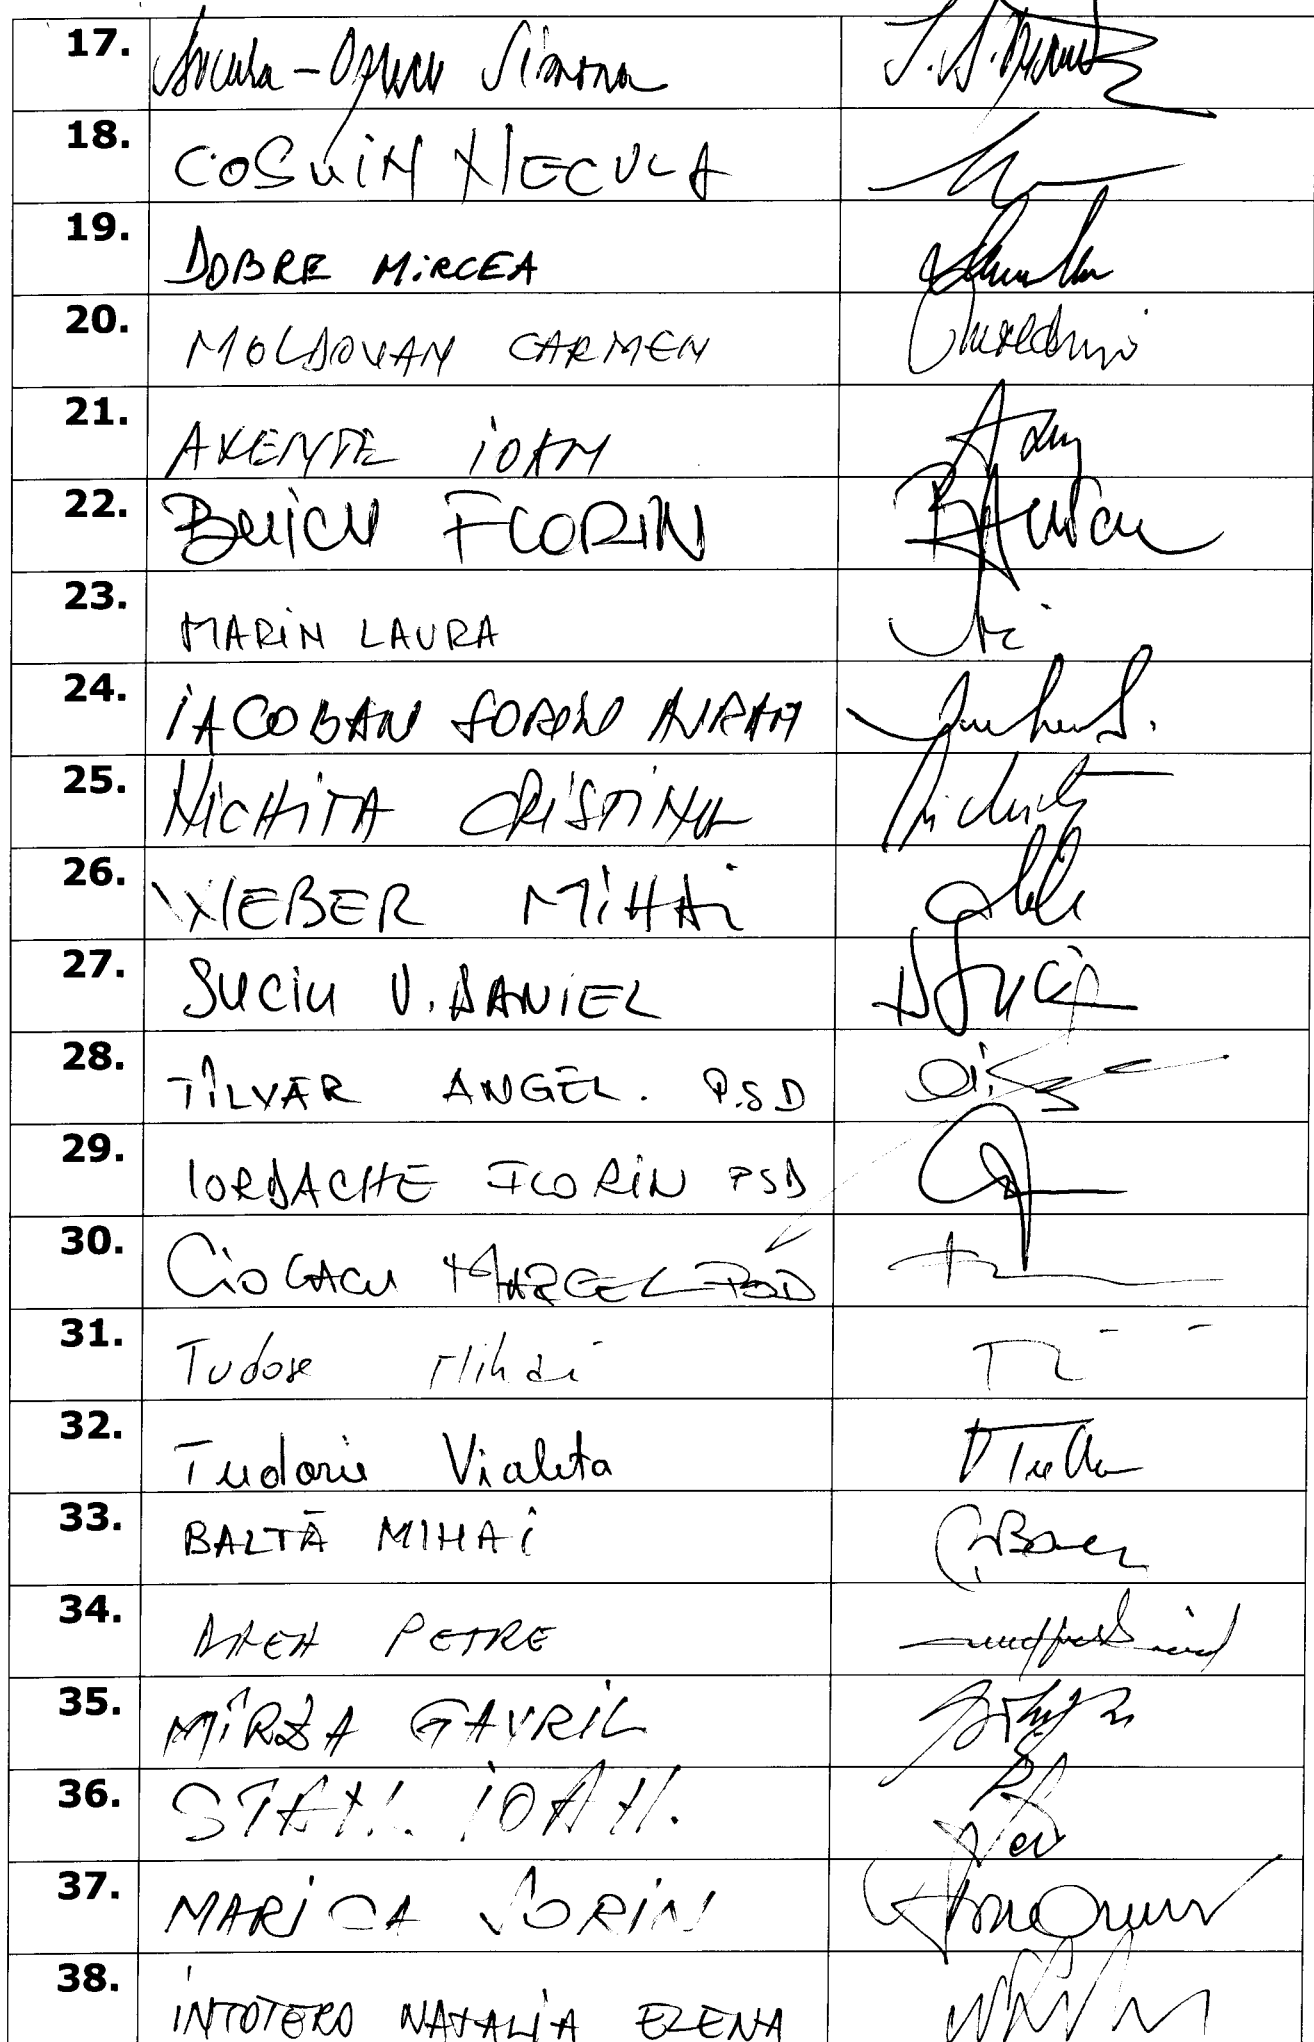 17. Bucura-Oprescu Simona
18. COSMIN NECULA
19. DOBRE MIRCEA
20. MOLDOVAN CARMEN
21. AXENTE IOAN
22. BUICU FLORIN
23. MARIN LAURA
24. IACOBAN SORIN AVRAM
25. NICHITA CRISTINA
26. WEBER MIHAI
27. SUCIU V. DANIEL
28. TÎLVĂR ANGEL. P.S.D
29. IORDACHE FLORIN PSD
30. CIOLACU MARCEL PSD
31. Tudose Mihai
32. Tudorie Violeta
33. BALTĂ MIHAI
34. PETRE
35. MÎRZA GAVRIL
36. STAN. IOAN.
37. MARICA SORIN
38. INTOTERO NATALIA ELENA